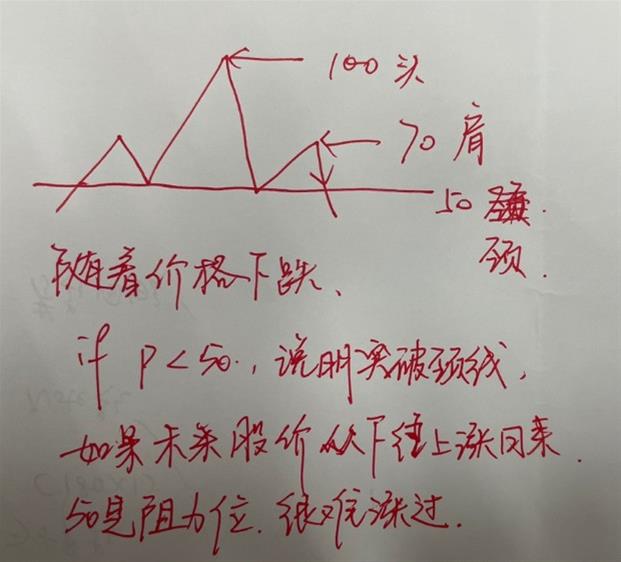 100 头
70 肩
50
颈.
随着价格下跌、
if P<50., 说明突破颈线,
如果未来股价从下往上涨回来.
50是阻力位. 很难涨过.